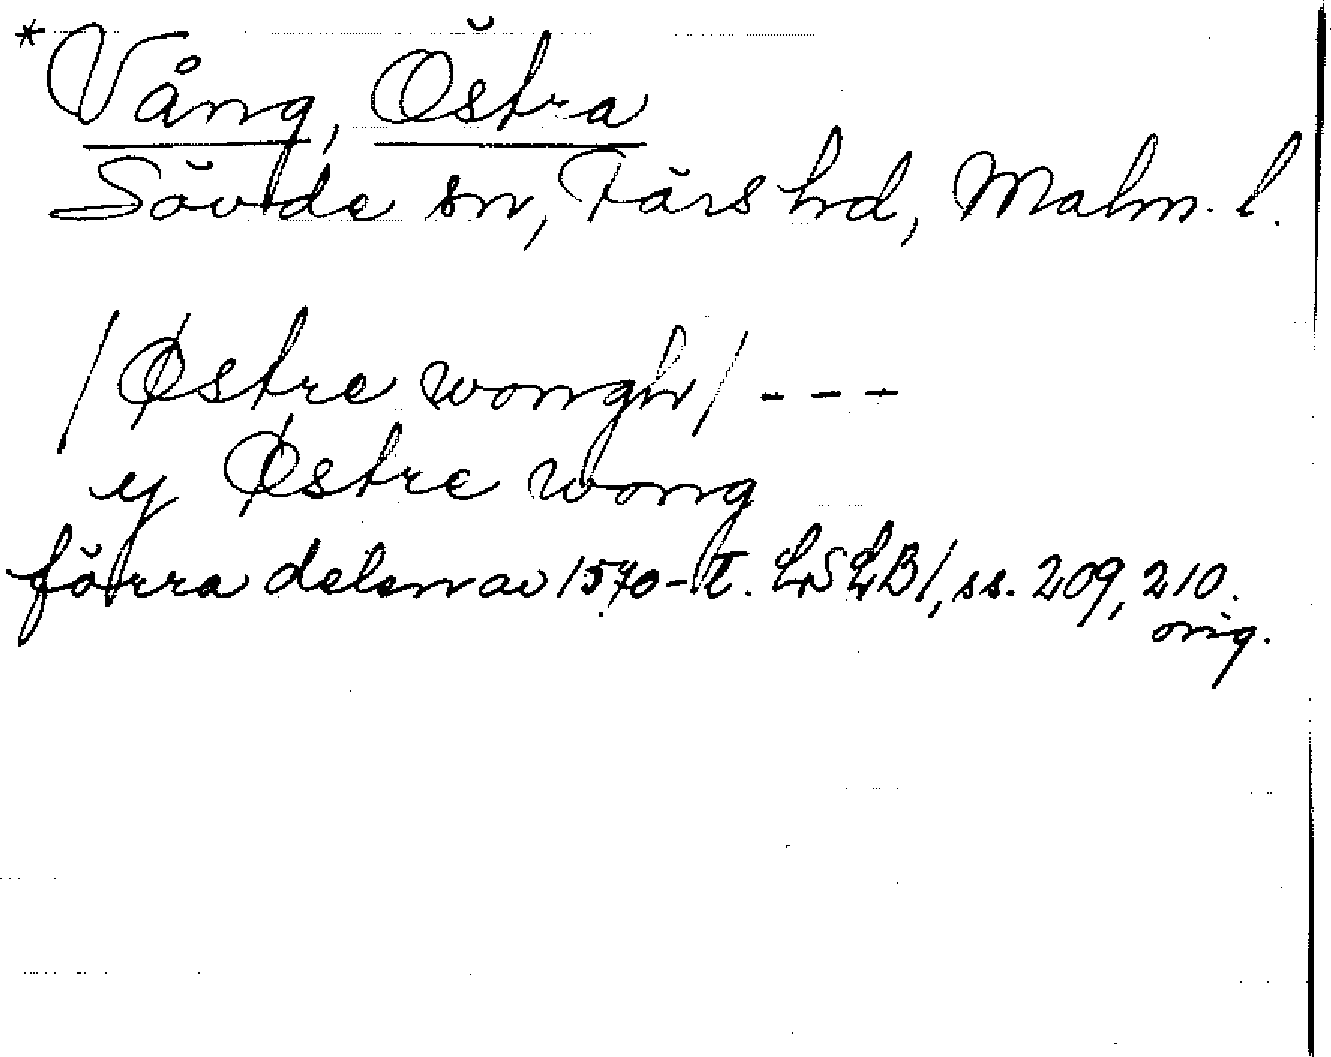 *Vång, Östra
Sövde sn, Färs hd, Malm. l.
/Østre wongh/ - - -
y Østre wong
förra delen av 1570-t. LSLB1, ss. 209, 210.
orig.